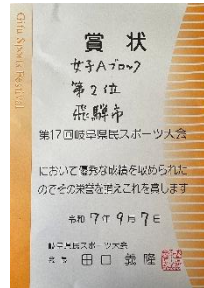 Gifu Sports Festival
賞状
女子Aブロック
第2位
飛騨市
第17回岐阜県民スポーツ大会
において優秀な成績を収められた
のでその栄誉を讃えこれを賞します
令和7年9月7日
岐阜県民スポーツ大会
会長 田口義隆